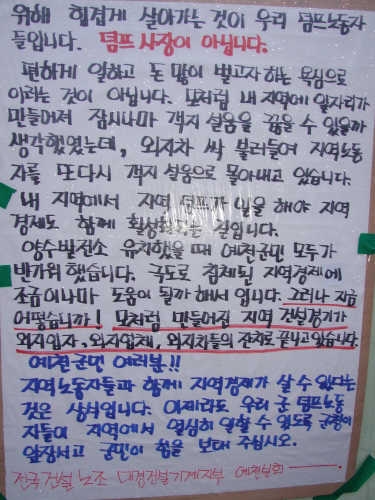 위해 힘겹게 살아가는 것이 우리 덤프노동자
들입니다. 덤프 사장이 아닙니다.
편하게 일하고 돈 많이 벌고자 하는 욕심으로
이러는 것이 아닙니다. 모처럼 내 지역에 일자리가
만들어져 잠시나마 객지 설움을 끊을 수 있을까
생각했었는데, 외지차 싹 불러들여 지역노동
자를 또다시 객지 설움으로 몰아내고 있습니다.
내 지역에서 지역 덤프가 일을 해야 지역
경제도 함께 회생하는 길입니다.
양수발전소 유치했을 때 예천군민 모두가
반가워 했습니다. 극도로 침체된 지역경제에
조금이나마 도움이 될까 해서 입니다. 그러나 지금
어떻습니까! 모처럼 만들어진 지역 건설경기가
외지업자, 외지업체, 외지차들의 잔치로 끝나고 있습니다.
예천군민 여러분!!
지역노동자들과 함께 지역경제가 살 수 있다는
것은 상식입니다. 이제라도 우리 군 덤프노동
자들이 지역에서 열심히 일할 수 있도록 군청이
앞장서고 군민이 힘을 보태 주십시오.
전국건설노조 대경건설기계지부 예천분회